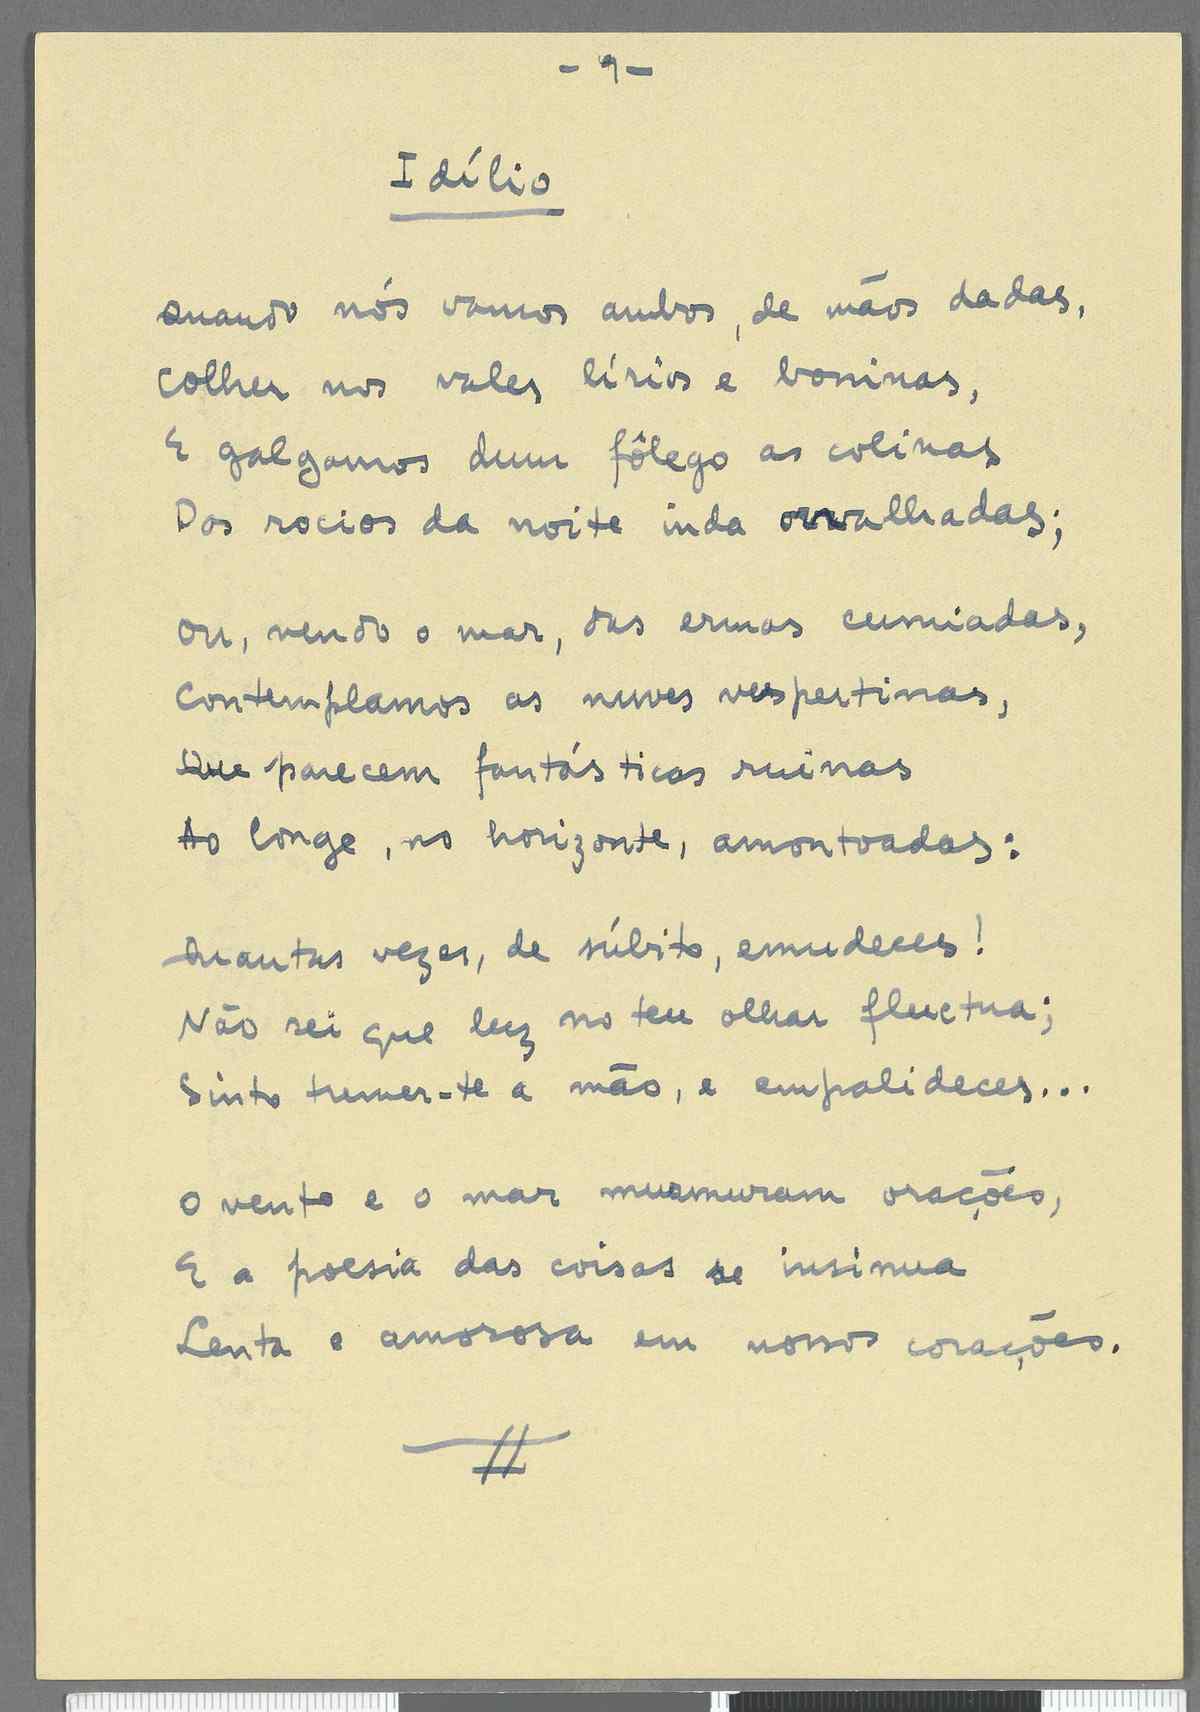 - 9 -
Idílio
Quando nós vamos ambos, de mãos dadas,
Colher nos vales lírios e boninas,
E galgamos dum fôlego as colinas
Dos rocios da noite inda orvalhadas;
Ou, vendo o mar, das ermas cumiadas,
Contemplamos as nuves vespertinas,
Que parecem fantásticas ruinas
Ao longe, no horizonte, amontoadas:
Quantas vezes, de súbito, emudeces!
Não sei que luz no teu olhar fluctua;
Sinto tremer-te a mão, e empalideces...
O vento e o mar murmuram orações,
E a poesia das coisas se insinua
Lenta e amorosa em nossos corações.